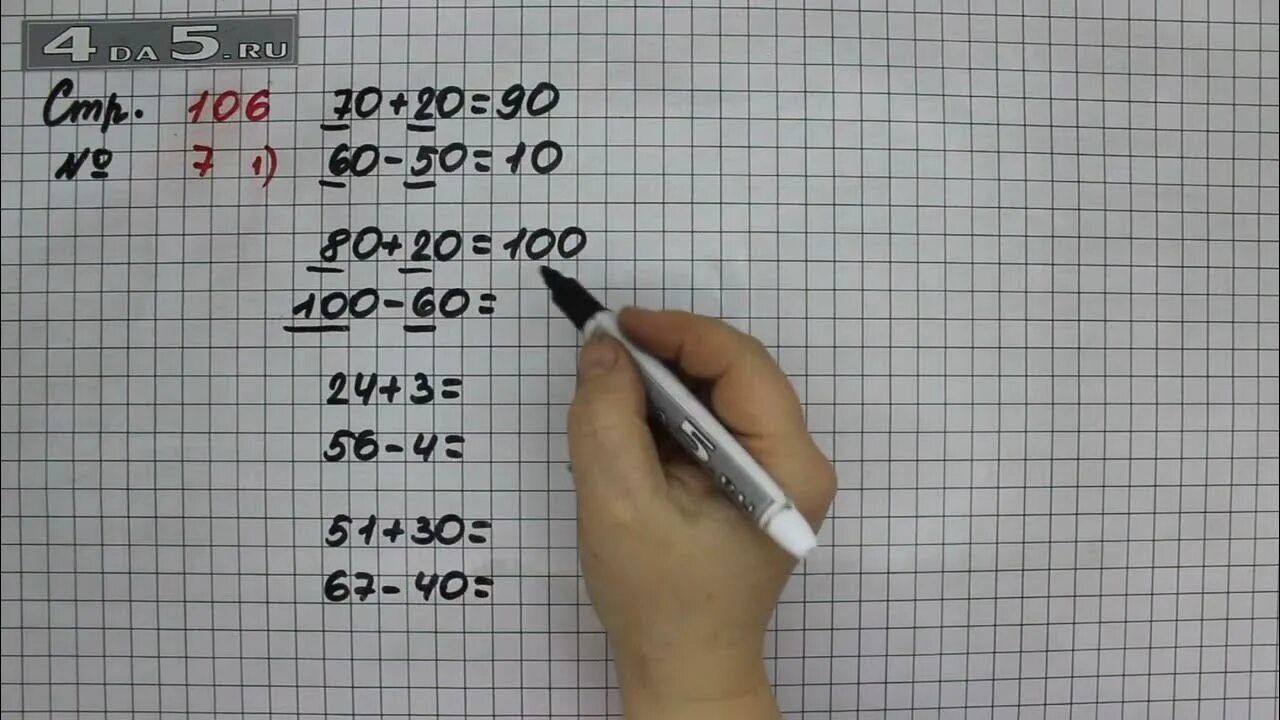 4DA5.RU
Стр. 106 70+20=90
№ 7 1) 60-50=10
80+20=100
100-60=
24+3=
56-4=
51+30=
67-40=
5.ru